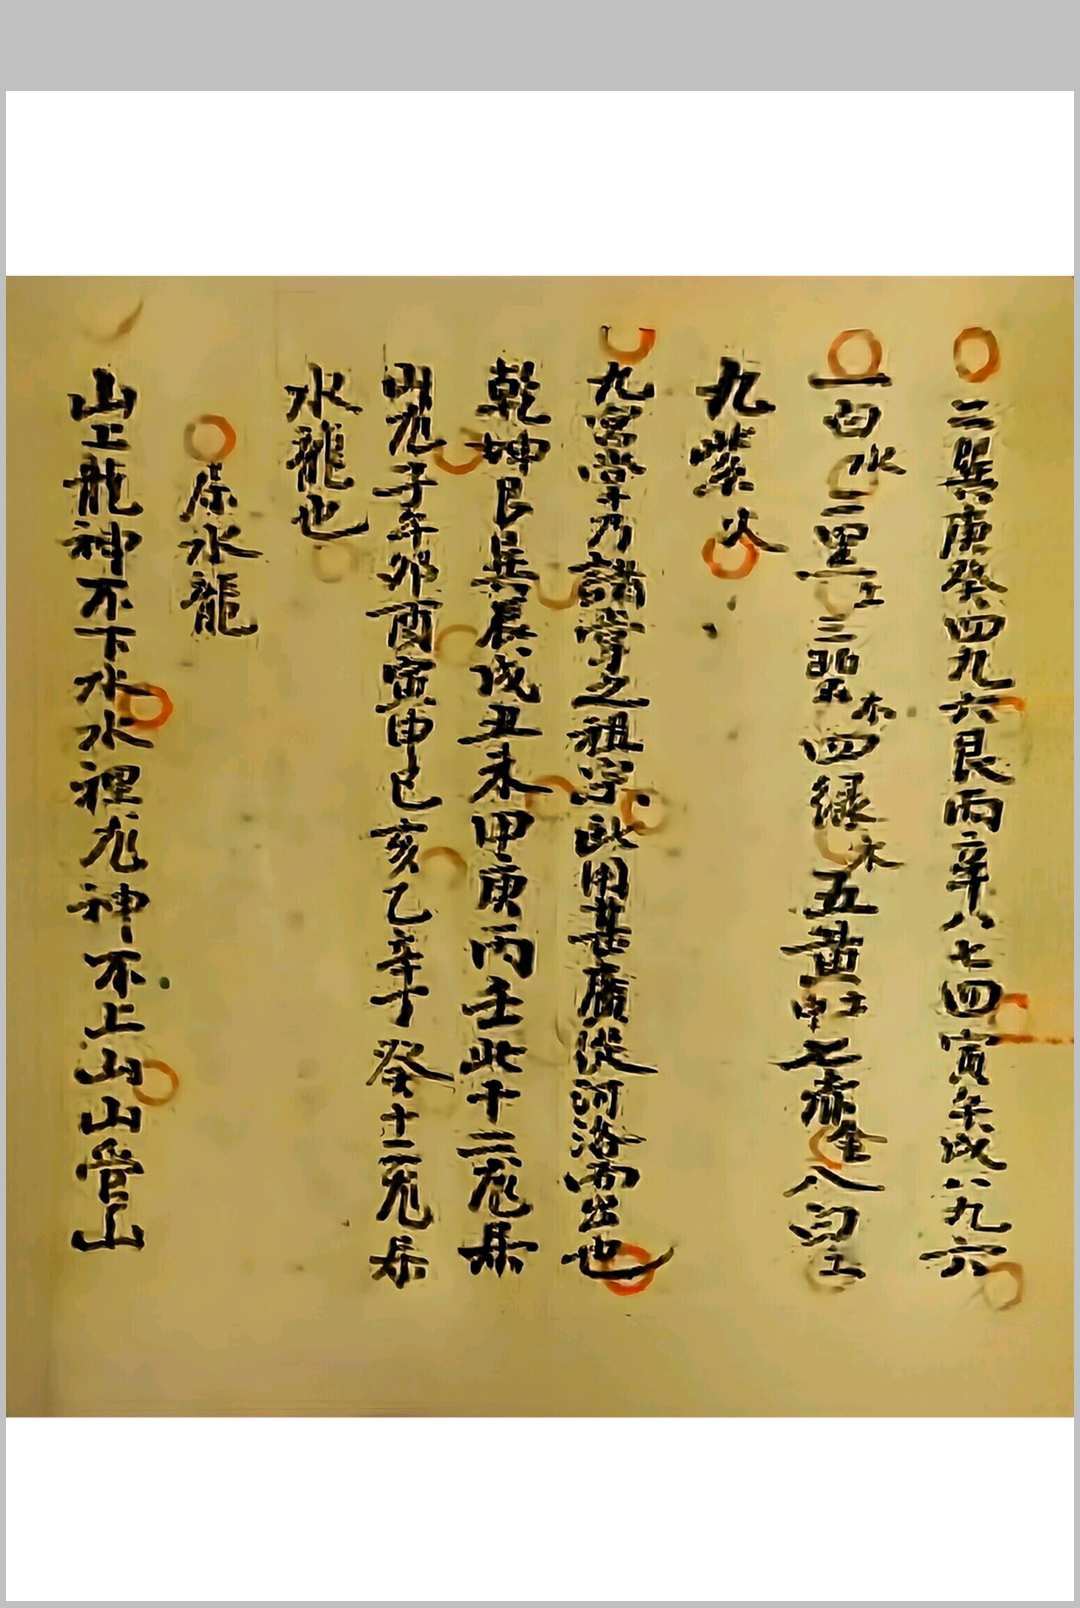 二巽庚癸四九六艮丙辛八七四寅午戌八九六
一白水二黑土三碧木四绿木五黄土中七赤金八白土
九紫火
九宮掌乃諸掌之祖宗此用甚廣從河洛而出也
乾坤艮巽辰戌丑未甲庚丙壬此十二龙系
山龙子午卯酉寅申巳亥乙辛丁癸十二龙系
水龍也
系水龍
山上龍神不下水水裡龙神不上山山管山